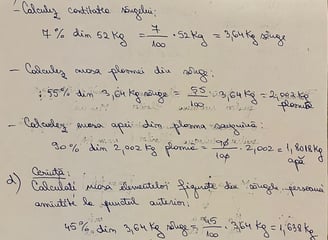 - Calculez cantitatea sângelui:
7% din 52 Kg = 7/100 · 52 Kg = 3,64 Kg sânge
- Calculez masa plasmei din sânge:
55% din 3,64 Kg sânge = 55/100 · 3,64 Kg = 2,002 Kg plasmă
- Calculez masa apei din plasma sanguină:
90% din 2,002 Kg plasmă = 90/100 · 2,002 = 1,8018 Kg apă
d) Cerința:
Calculați masa elementelor figurate din sângele persoanei amintite la punctul anterior.
45% din 3,64 Kg sânge = 45/100 · 3,64 Kg = 1,638 Kg